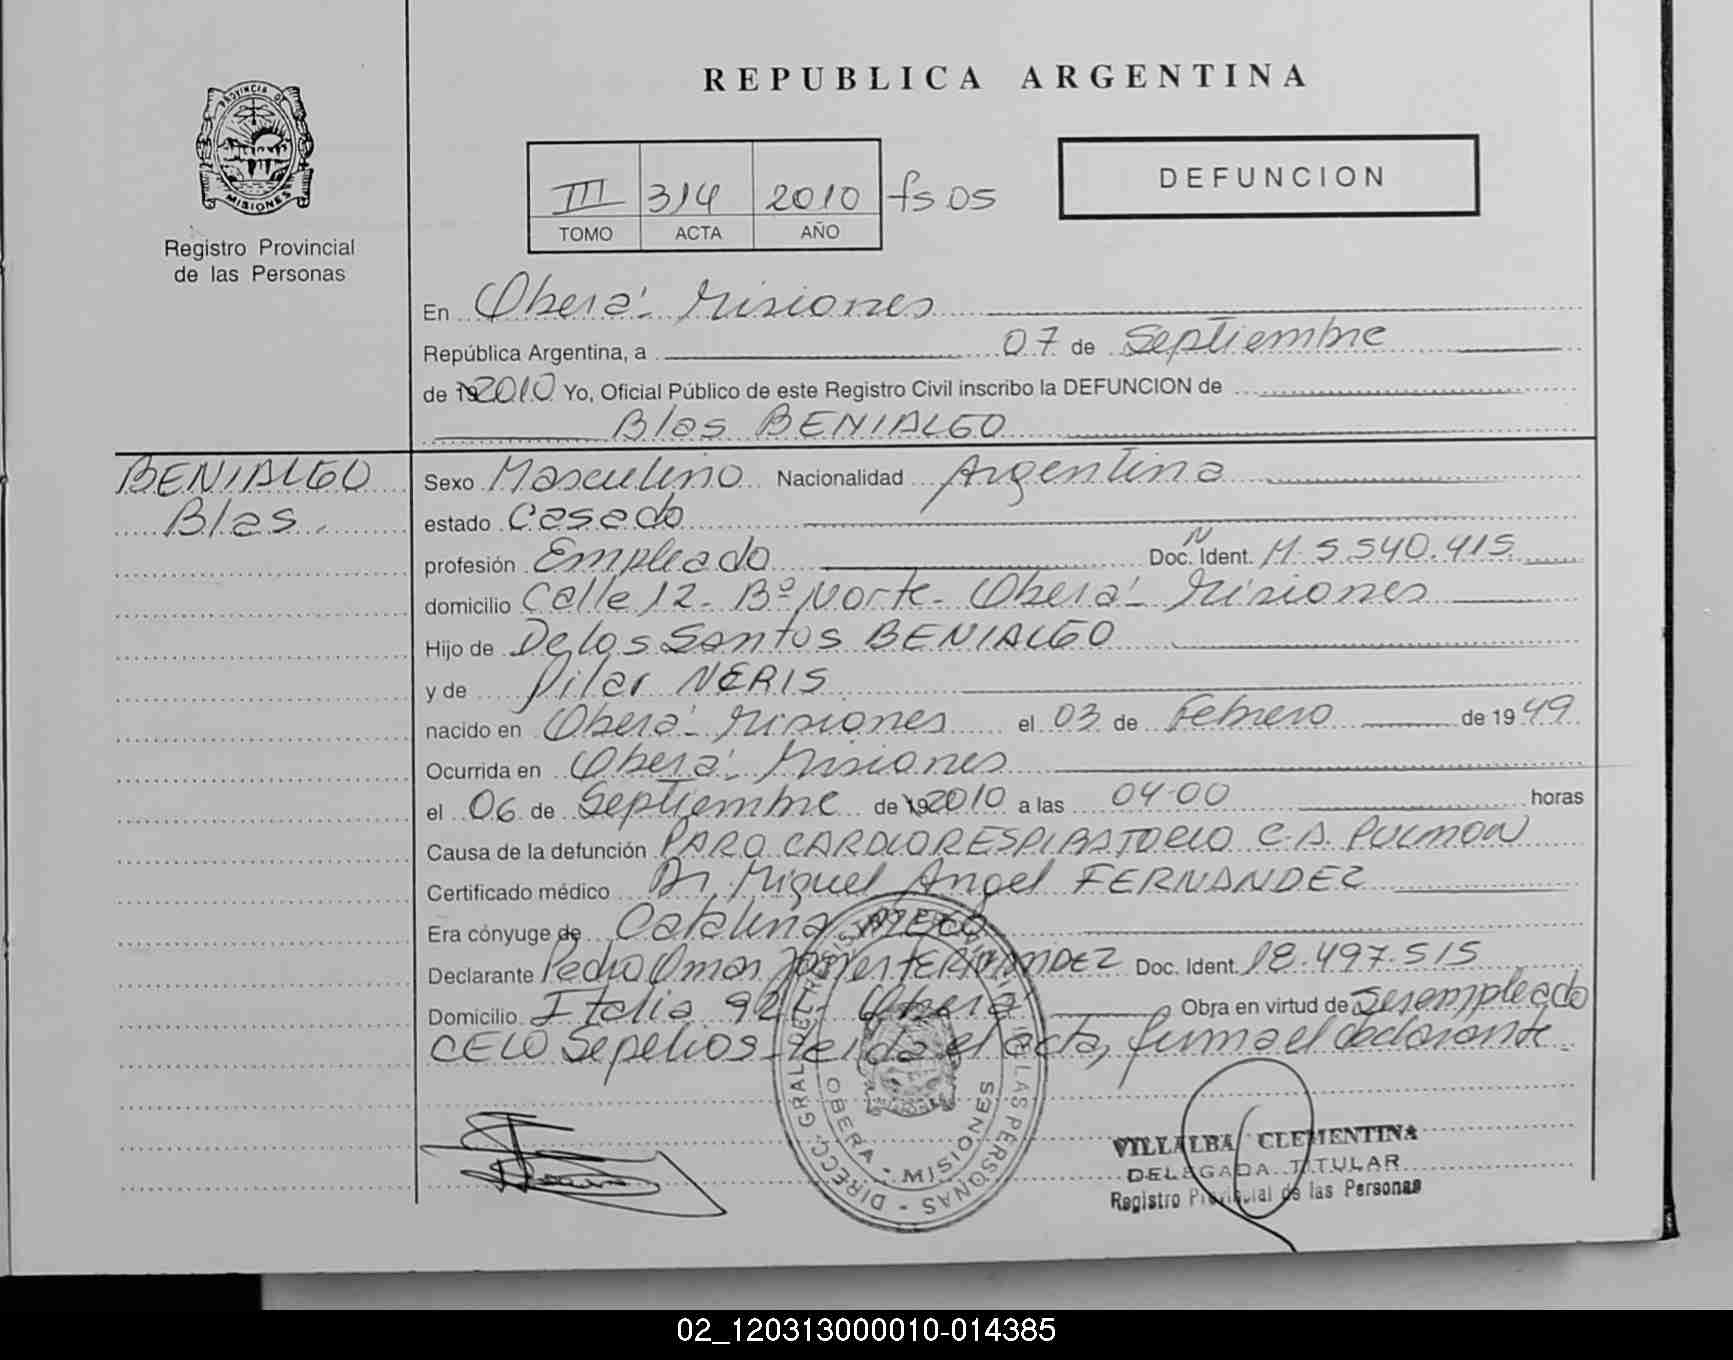 REPUBLICA ARGENTINA
PROVINCIA DE
MISIONES
Registro Provincial
de las Personas
III 314 2010 fs 05
TOMO ACTA AÑO
DEFUNCION
En Oberá - Misiones
República Argentina, a 07 de Septiembre
de 192010 Yo, Oficial Público de este Registro Civil inscribo la DEFUNCION de
Blas BENIALGO
BENIALGO
Blas
Sexo Masculino Nacionalidad Argentina
estado Casado
profesión Empleado Doc. N Ident. M. 5.540.415
domicilio Calle 12 - Bº Norte - Oberá - Misiones
Hijo de De los Santos BENIALGO
y de Pilar NERIS
nacido en Oberá - Misiones el 03 de Febrero de 1949
Ocurrida en Oberá - Misiones
el 06 de Septiembre de 192010 a las 04·00 horas
Causa de la defunción PARO CARDIORESPIRATORIO C.A. PULMON
Certificado médico Dr. Miguel Angel FERNANDEZ
Era cónyuge de Catalina
Declarante Pedro Omar FERNANDEZ Doc. Ident. 18.497.515
Domicilio Italia Oberá Obra en virtud de ser empleado
CELO Sepelios - leída el acta, firma el declarante
DIRECC. GRAL. DEL REGISTRO PROVINCIAL DE LAS PERSONAS -
OBERA - MISIONES
VILLALBA CLEMENTINA
DELEGADA TITULAR
Registro Provincial de las Personas
02_120313000010-014385